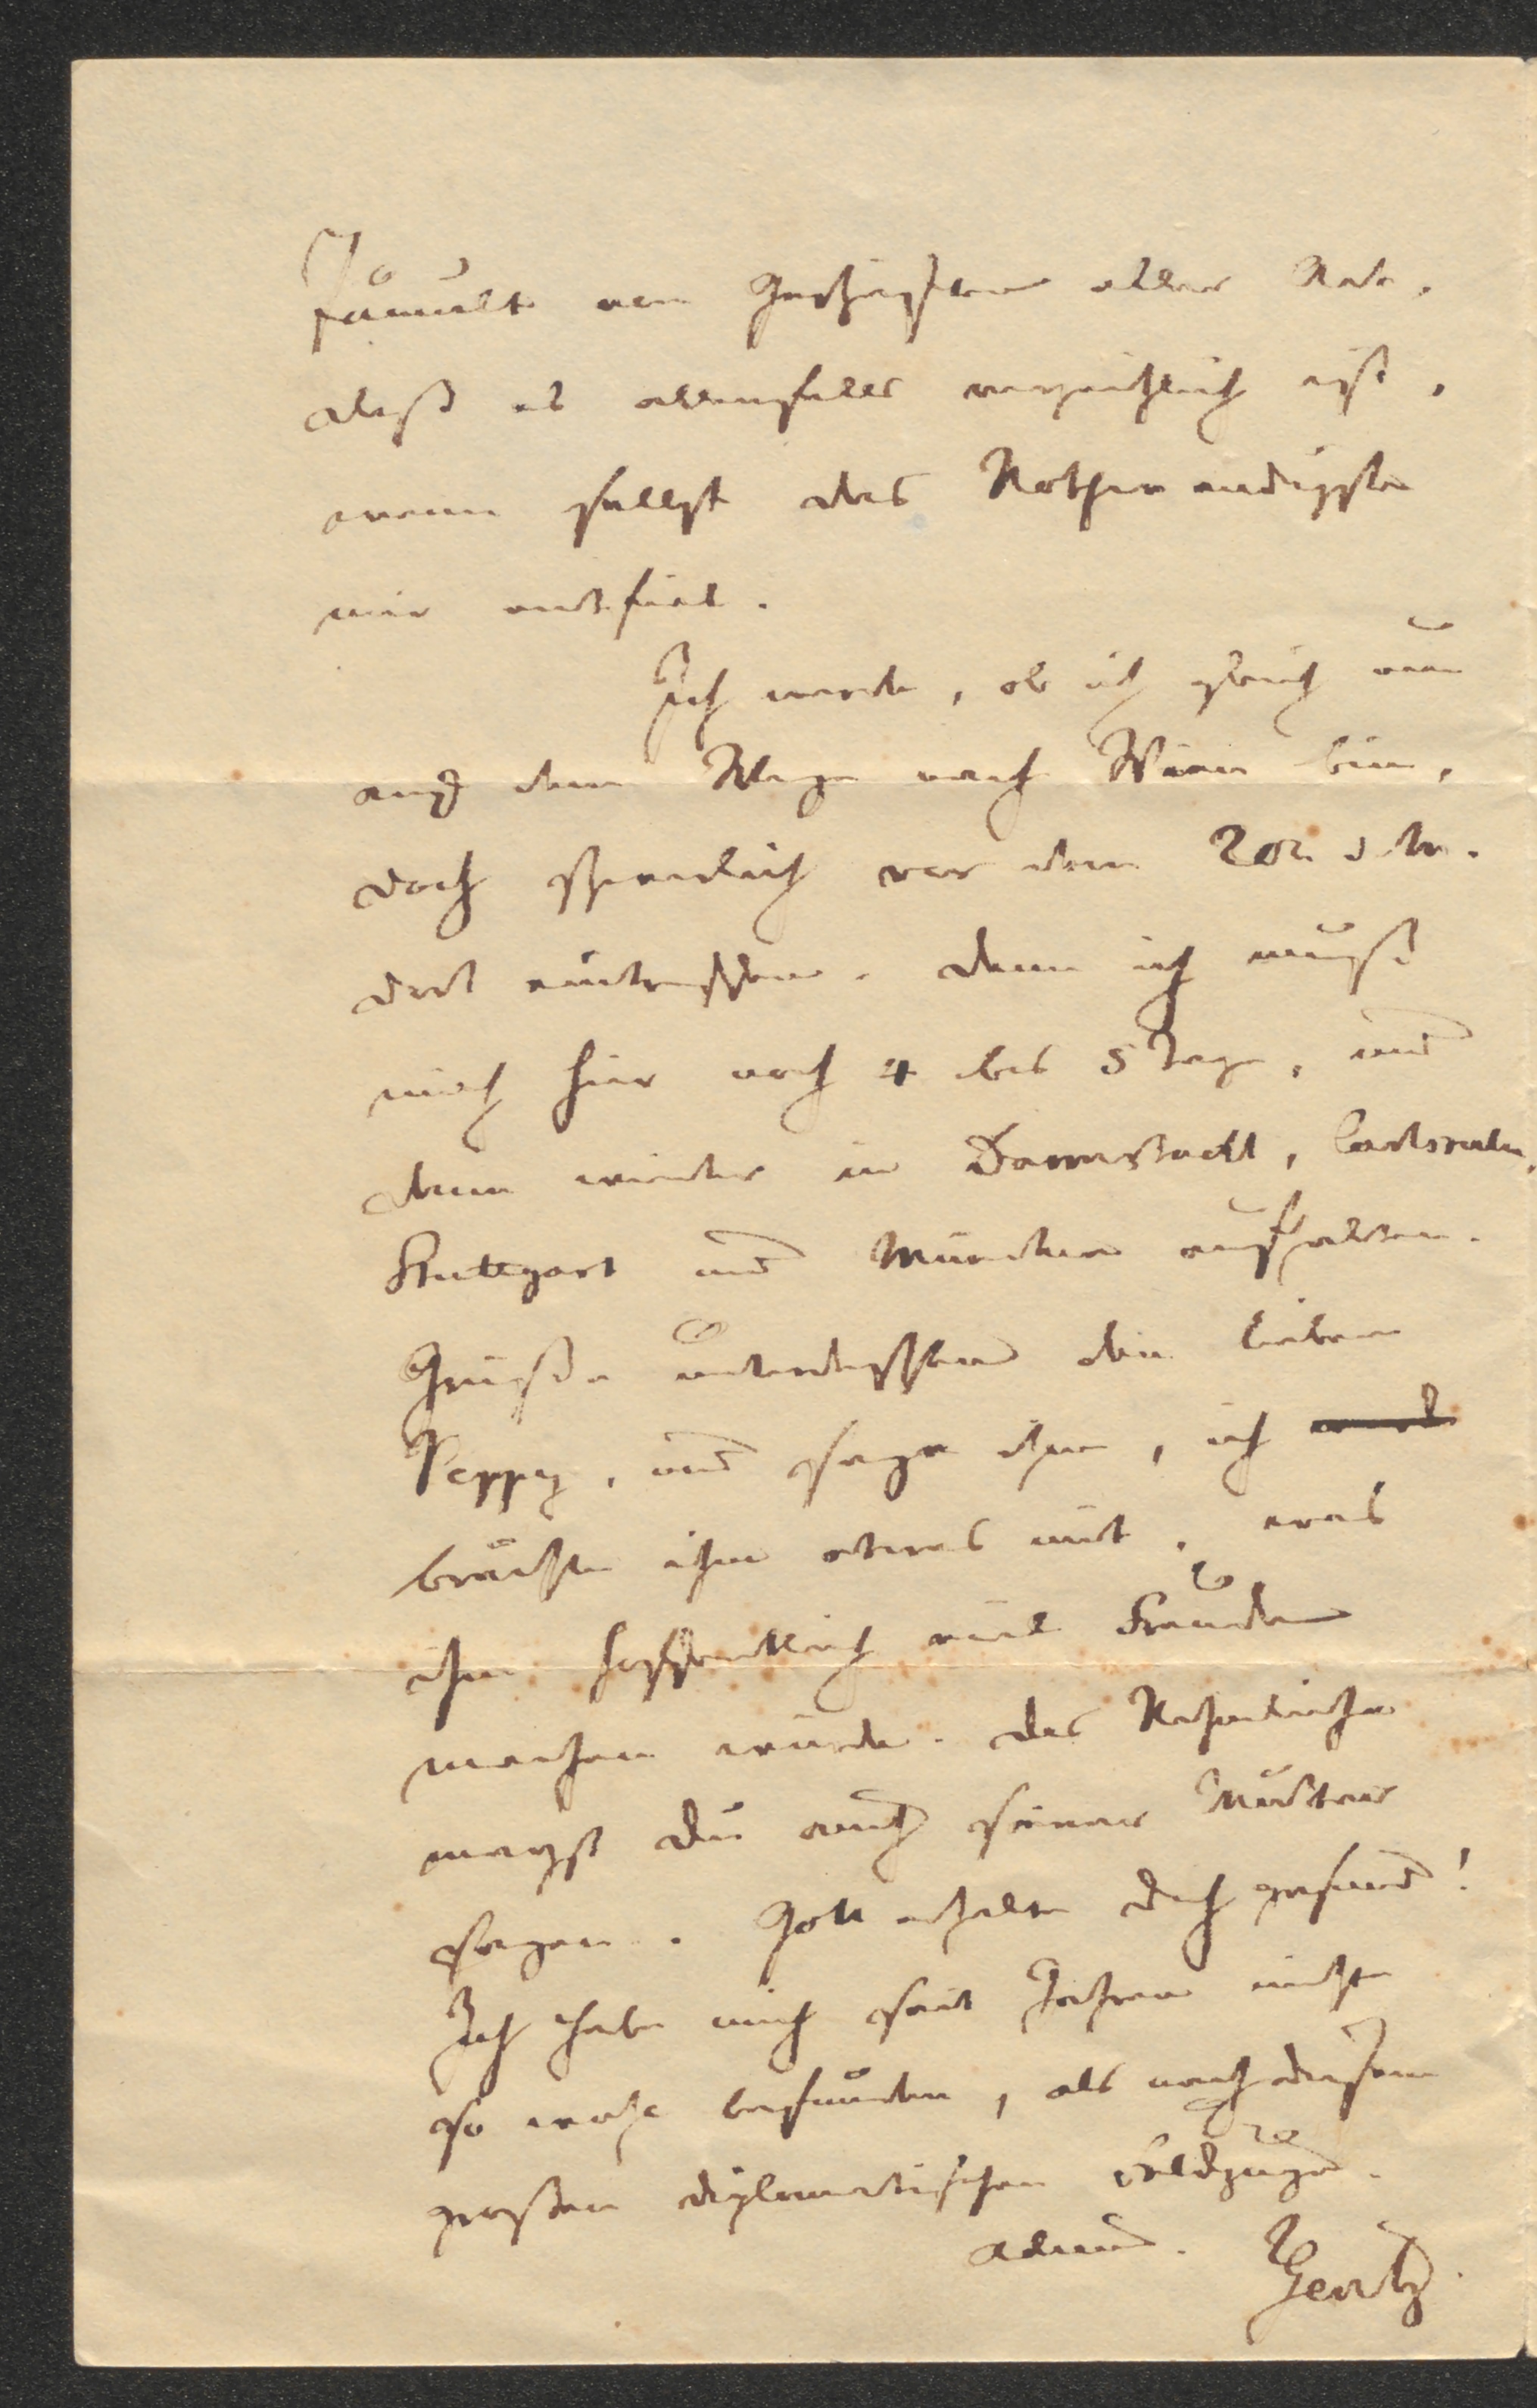 Tumult von Geschäften aller Art,
daß es allenfalls verzeihlich ist,
wenn selbst das Nothwendigste
mir entfiel.
Ich werde, ob ich gleich nun
auf dem Wege nach Wien bin,
doch schwerlich vor dem 20n
dort eintreffen. Denn ich muß
mich hier noch 4 bis 5 Tage, und
dann wieder in Darmstadt, Carlsruhe,
Stuttgart und München aufhalten.
Grüße unterdessen den lieben
Peppy, und sage ihm, ich
brächte ihm etwas mit, was
ihm hoffentlich viel Freude
machen würde. Das Nehmliche
magst Du auch seiner Mutter
sagen. Gott erhalte Dich gesund!
Ich habe mich seit Jahren nicht
so wohl befunden, als nach diesem
großen diplomatischen Feldzuge.
Adieu. Gentz.